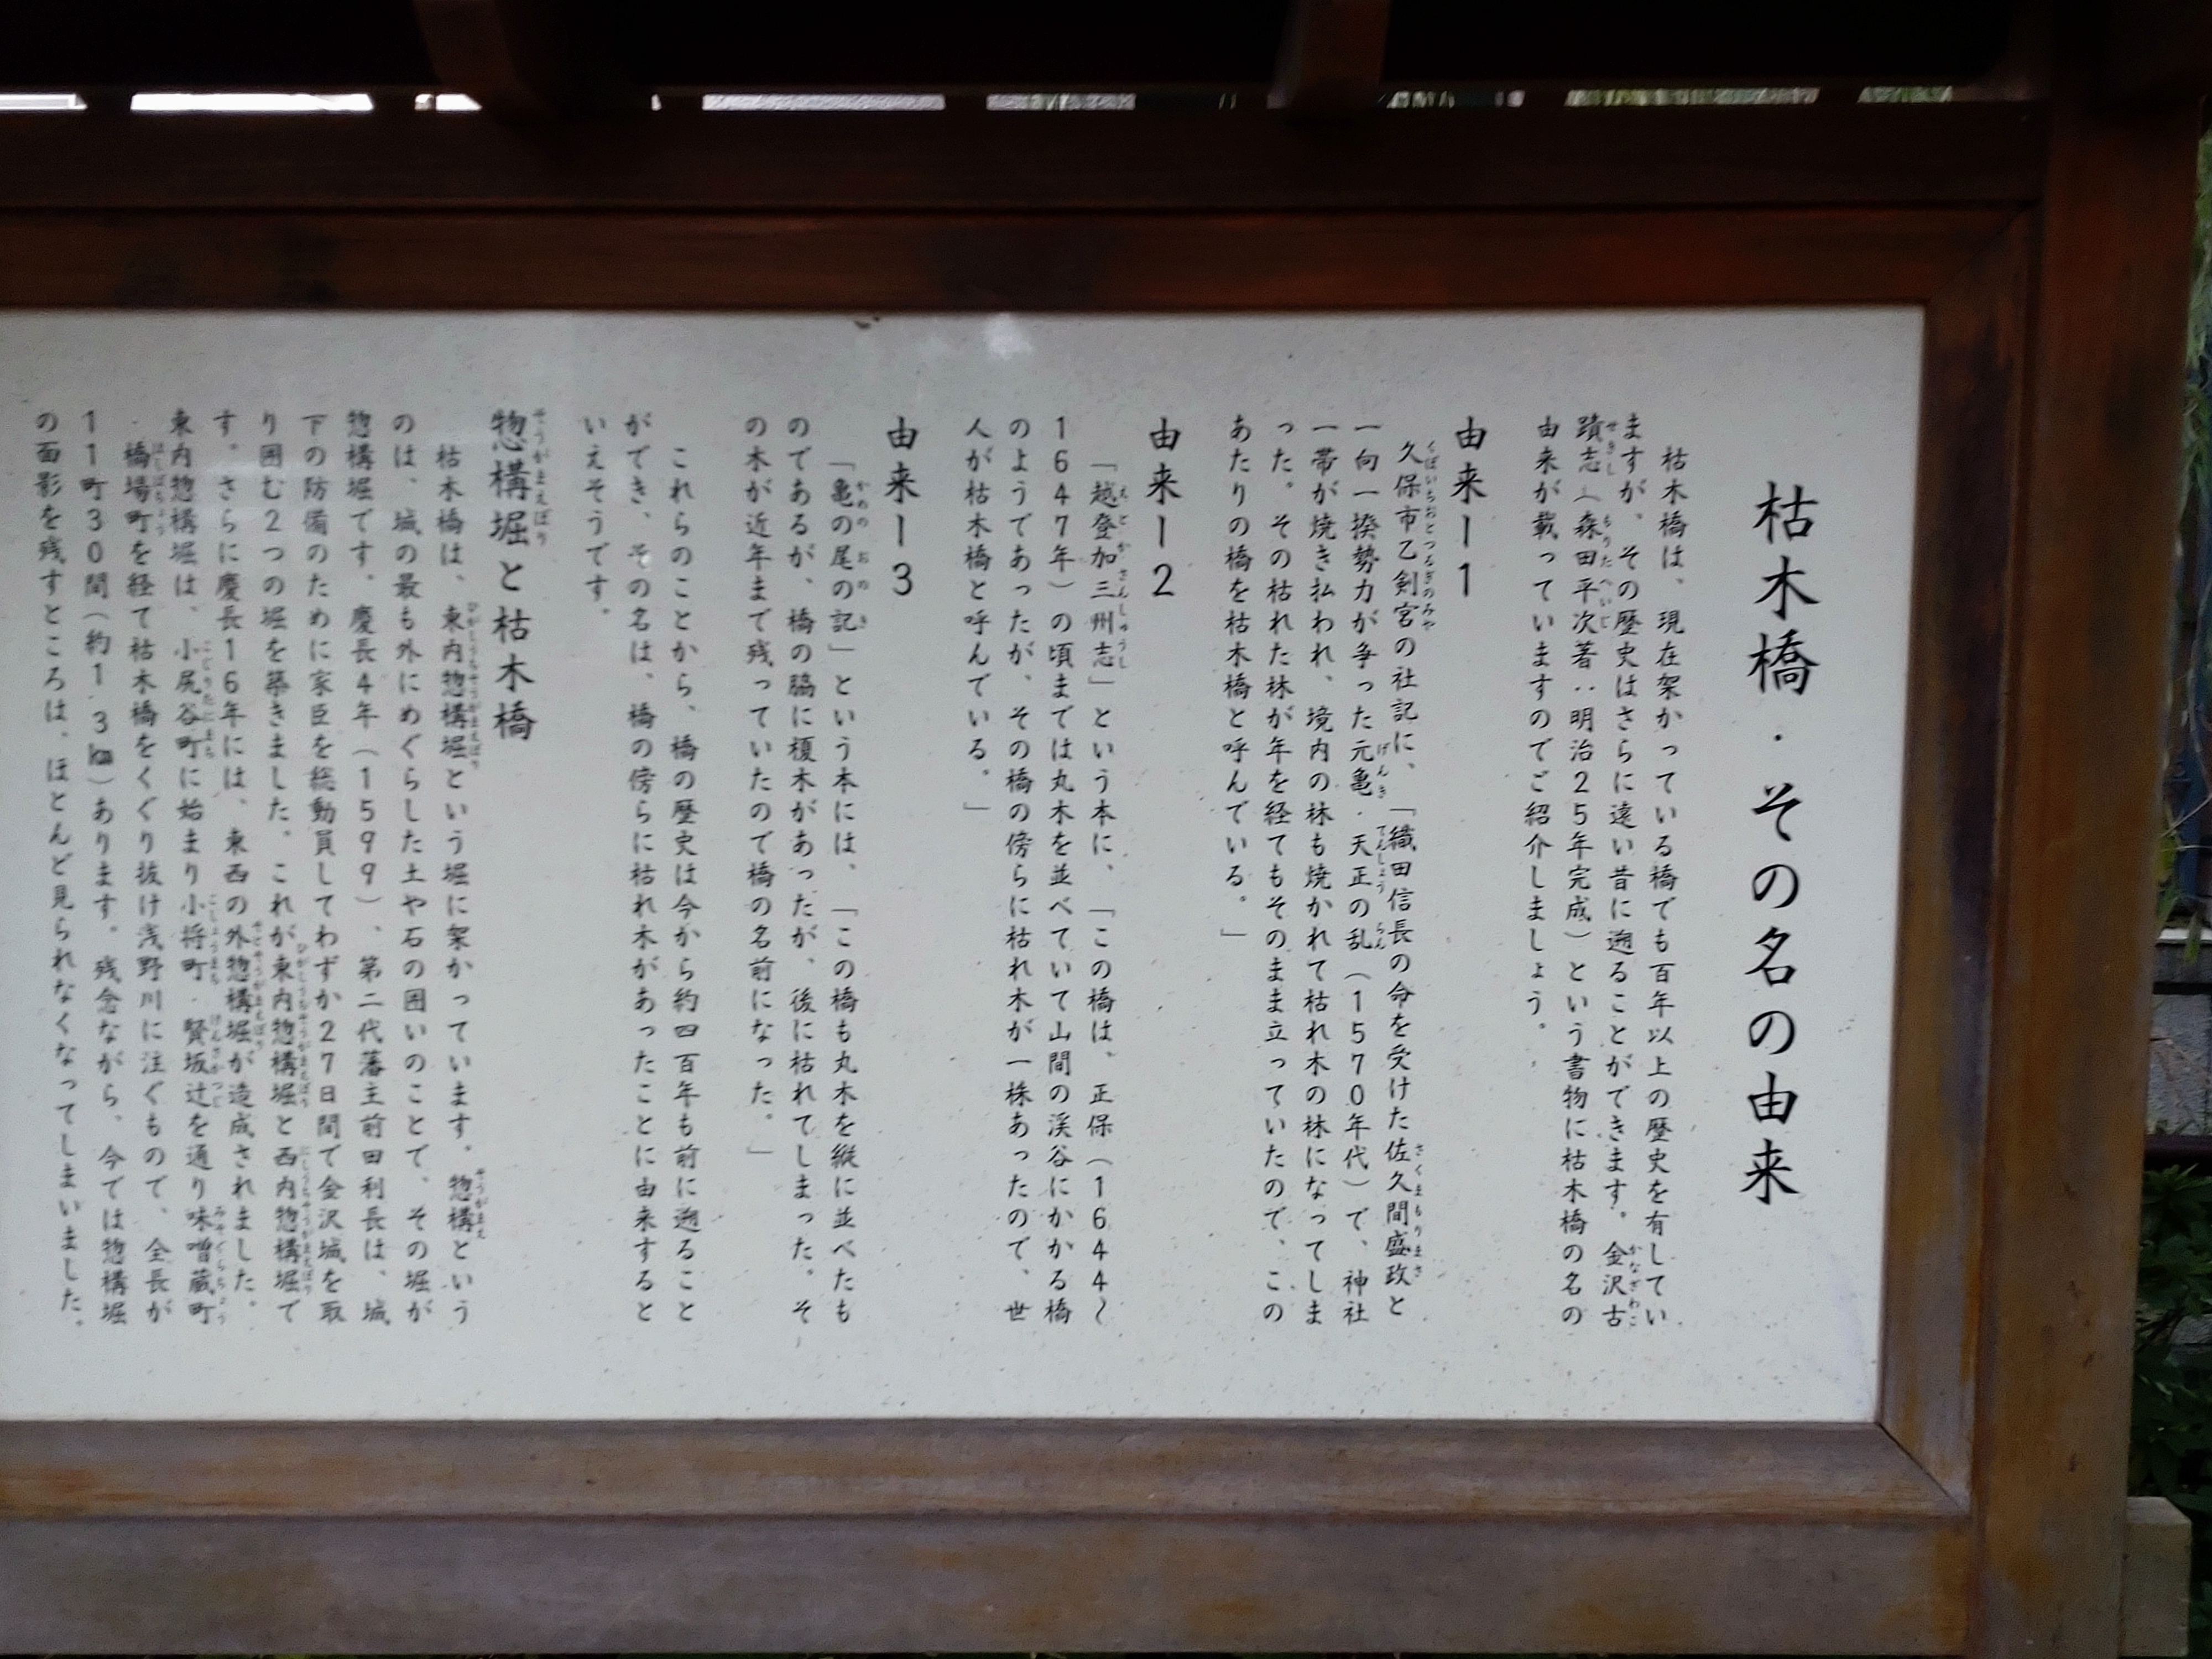 枯木橋・その名の由来
枯木橋は、現在架かっている橋でも百年以上の歴史を有してい
ますが、その歴史はさらに遠い昔に遡ることができます。金沢古
蹟志(森田平次著:明治25年完成)という書物に枯木橋の名の
由来が載っていますのでご紹介しましょう。
由来ー1
久保市乙剣宮の社記に、「織田信長の命を受けた佐久間盛政と
一向一揆勢力が争った元亀・天正の乱(1570年代)で、神社
一帯が焼き払われ、境内の林も焼かれて枯れ木の林になってしま
った。その枯れた林が年を経てもそのまま立っていたので、この
あたりの橋を枯木橋と呼んでいる。」
由来ー2
「越登加三州志」という本に、「この橋は、正保(1644〜
1647年)の頃までは丸木を並べていて山間の渓谷にかかる橋
のようであったが、その橋の傍らに枯れ木が一株あったので、世
人が枯木橋と呼んでいる。」
由来ー3
「亀の尾の記」という本には、「この橋も丸木を縦に並べたも
のであるが、橋の脇に榎木があったが、後に枯れてしまった。そ
の木が近年まで残っていたので橋の名前になった。」
これらのことから、橋の歴史は今から約四百年も前に遡ること
ができ、その名は、橋の傍らに枯れ木があったことに由来すると
いえそうです。
惣構堀と枯木橋
枯木橋は、東内惣構堀という堀に架かっています。惣構という
のは、城の最も外にめぐらした土や石の囲いのことで、その堀が
惣構堀です。慶長4年(1599)、第二代藩主前田利長は、城
下の防備のために家臣を総動員してわずか27日間で金沢城を取
り囲む2つの堀を築きました。これが東内惣構堀と西内惣構堀で
す。さらに慶長16年には、東西の外惣構堀が造成されました。
東内惣構堀は、小尻谷町に始まり小将町・賢坂辻を通り味噌蔵町
・橋場町を経て枯木橋をくぐり抜け浅野川に注ぐもので、全長が
11町30間(約1.3㎞)あります。残念ながら、今では惣構堀
の面影を残すところは、ほとんど見られなくなってしまいました。